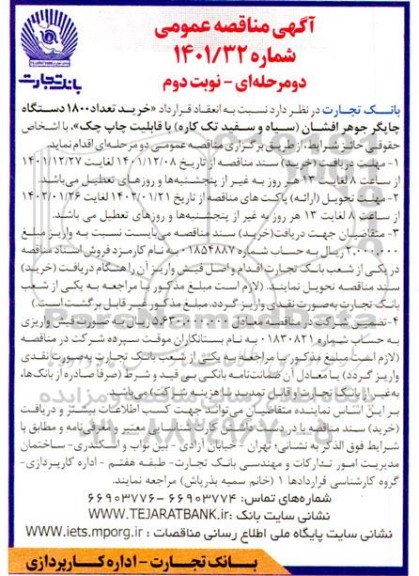 آگهی مناقصه عمومی
شماره ۱۴۰۱/۳۲
دومرحله‌ای - نوبت دوم
بانک تجارت
بانک تجارت در نظر دارد نسبت به انعقاد قرارداد «خرید تعداد ۱۸۰۰ دستگاه
چاپگر جوهر افشان (سیاه و سفید تک کاره) با قابلیت چاپ چک»، با اشخاص
حقوقی حائز شرایط، از طریق برگزاری مناقصه عمومی دو مرحله‌ای اقدام نماید.
۱- مهلت دریافت (خرید) سند مناقصه از تاریخ ۱۴۰۱/۱۲/۰۸ لغایت ۱۴۰۱/۱۲/۲۷
از ساعت ۸ لغایت ۱۳ هر روز به غیر از پنجشنبه‌ها و روزهای تعطیل می‌باشد.
۲- مهلت تحویل (ارائه) پاکت های مناقصه از تاریخ ۱۴۰۲/۰۱/۲۱ لغایت ۱۴۰۲/۰۱/۲۶
از ساعت ۸ لغایت ۱۳ هر روز به غیر از پنجشنبه‌ها و روزهای تعطیل می باشد.
۳- متقاضیان جهت دریافت (خرید) سند مناقصه می‌بایست نسبت به واریز مبلغ
۲,۰۰۰,۰۰۰ ریال به حساب شماره ۰۱۸۵۴۸۸۷ به نام کارمزد فروش اسناد مناقصه
در یکی از شعب بانک تجارت اقدام و اصل فیش واریز آن را هنگام دریافت (خرید)
سند مناقصه تحویل نمایند. (لازم است مبلغ مذکور با مراجعه به یکی از شعب
بانک تجارت به صورت نقدی واریز گردد. مبلغ مذکور غیر قابل برگشت است.)
۴- تضمین شرکت در مناقصه معادل ۵,۶۳۰,۰۰۰,۰۰۰ ریال به صورت فیش واریزی
به حساب شماره ۰۱۸۳۰۸۲۱ به نام بستانکاران موقت سپرده شرکت در مناقصه
(لازم است مبلغ مذکور با مراجعه به یکی از شعب بانک تجارت به صورت نقدی
واریز گردد) یا معادل آن ضمانت‌نامه بانکی بی قید و شرط (صرفا صادره از بانک‌ها،
به غیر از بانک تجارت) و قابل تمدید
بر این اساس نماینده متقاضیان می‌تواند جهت کسب اطلاعات بیشتر و دریافت
(خرید) سند مناقصه با در دست داشتن کارت شناسایی معتبر و معرفی‌نامه و مطابق با
شرایط فوق الذکر به نشانی: تهران - خیابان آزادی - بین نواب و اسکندری- ساختمان
مدیریت امور تدارکات و مهندسی بانک تجارت- طبقه هفتم - اداره کارپردازی-
گروه کارشناسی قراردادها ۱ (خانم سمیه بذرپاش) مراجعه نمایند.
شماره‌های تماس: ۶۶۹۰۳۷۷۴ - ۶۶۹۰۳۷۷۶
نشانی سایت بانک: WWW.TEJARATBANK.ir
نشانی سایت پایگاه ملی اطلاع رسانی مناقصات: WWW.iets.mporg.ir
بانک تجارت - اداره کارپردازی